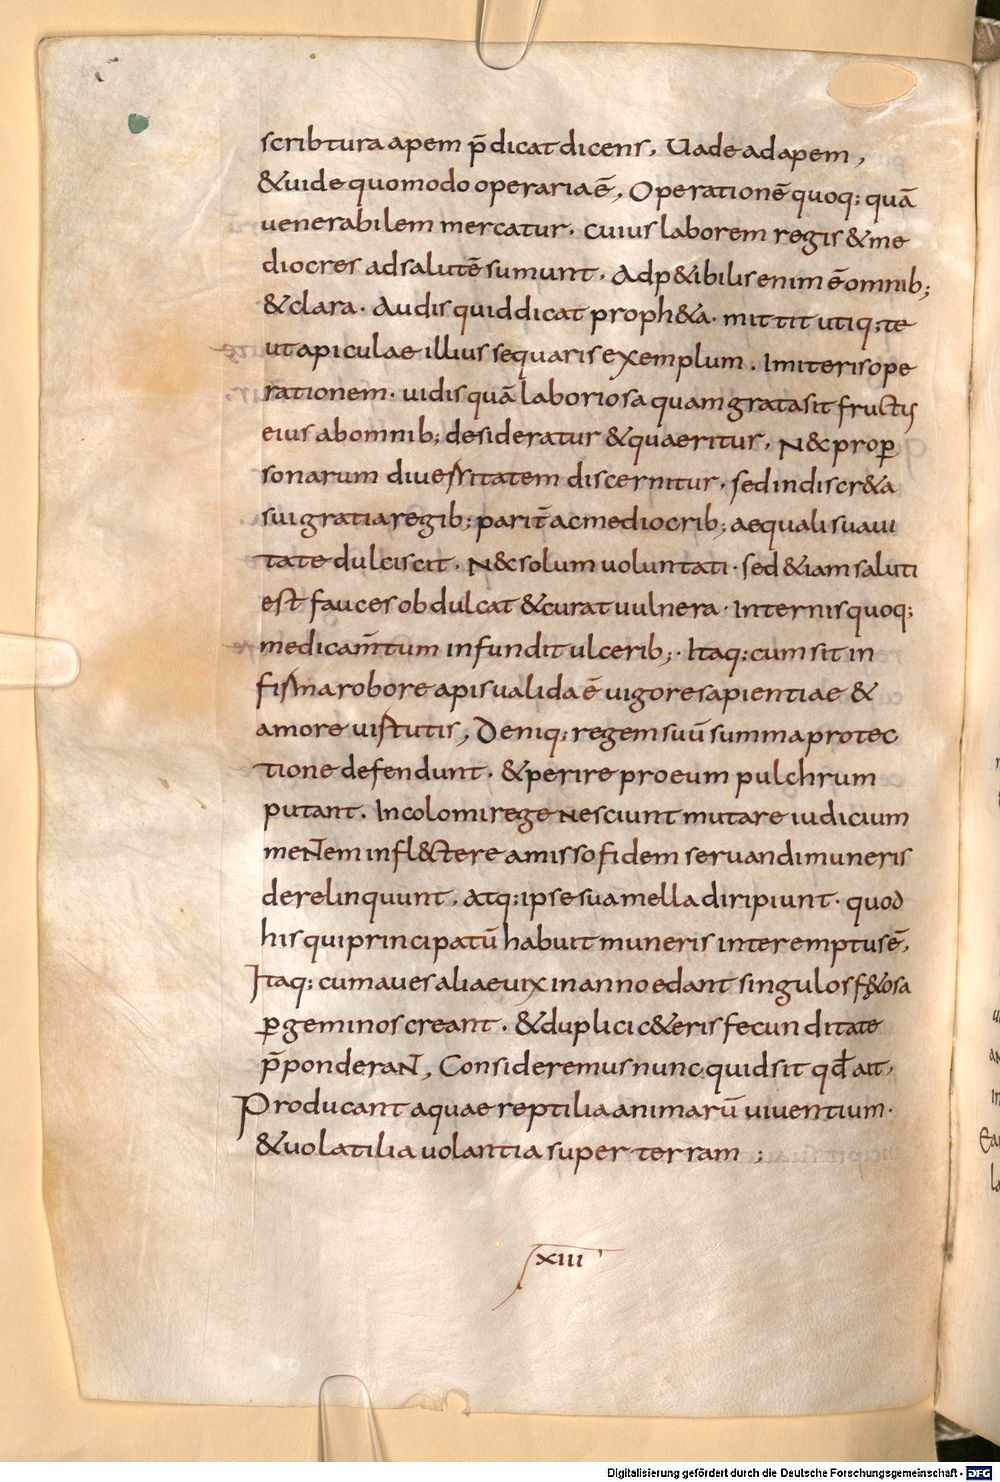 scribtura apem p̄dicat dicens, Uade ad apem,
&uide quomodo operaria ē, Operationē quoq; quā
uenerabilem mercatur. cuius laborem regis & me
diocres ad salutē sumunt. Adp&ibilis enim ē omnib;
& clara. Audis quid dicat proph&a. mittit utiq; te
ut apiculae illius sequaris exemplum. Imiteris ope
rationem. uidis quā laboriosa quam grata sit fructus
eius ab omnib; desideratur & quaeritur, N& pro p̲
sonarum diuersitatem discernitur, sed indiscr&a
sui gratia regib; parit̄ ac mediocrib; aequali suaui
tate dulciscit. N& solum uoluntati. sed &iam saluti
est fauces obdulcat & curat uulnera. Internis quoq;
medicam̄tum infundit ulcerib;. Itaq; cum sit in
firma robore apis ualida ē uigore sapientiae &
amore uirtutis, Deniq; regem suū summa protec
tione defendunt. & perire pro eum pulchrum
putant. Incolomi rege nesciunt mutare iudicium
meNTem infl&ctere amisso fidem seruandi muneris
derelinquunt, atq; ipse sua mella diripiunt. quod
his qui principatū habuit muneris interemptus ē,
Itaq; cum aues aliae uix in anno edant singulos f&osa
p̲ geminos creant. & duplici c&eris fecunditate
p̄ponderaNT, Consideremus nunc quid sit qd̄ ait,
Producant aquae reptilia animarū uiuentium.
& uolatilia uolantia super terram ;
xiii
Digitalisierung gefördert durch die Deutsche Forschungsgemeinschaft - DFG